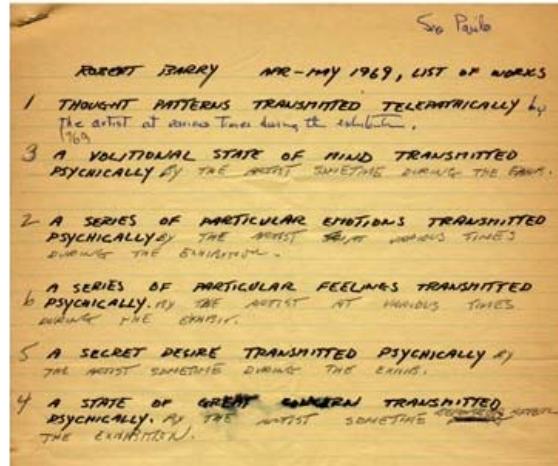 São Paulo
ROBERT BARRY APR-MAY 1969, LIST OF WORKS
1 THOUGHT PATTERNS TRANSMITTED TELEPATHICALLY by
the artist at various times during the exhibition.
1969
3 A VOLITIONAL STATE OF MIND TRANSMITTED
PSYCHICALLY BY THE ARTIST SOMETIME DURING THE EXHIB.
2 A SERIES OF PARTICULAR EMOTIONS TRANSMITTED
PSYCHICALLY BY THE ARTIST AT VARIOUS TIMES
DURING THE EXHIBITION.
6 A SERIES OF PARTICULAR FEELINGS TRANSMITTED
PSYCHICALLY. BY THE ARTIST AT VARIOUS TIMES
DURING THE EXHIBIT.
5 A SECRET DESIRE TRANSMITTED PSYCHICALLY BY
THE ARTIST SOMETIME DURING THE EXHIB.
4 A STATE OF GREAT CONCERN TRANSMITTED
PSYCHICALLY. BY THE ARTIST SOMETIME
THE EXHIBITION.